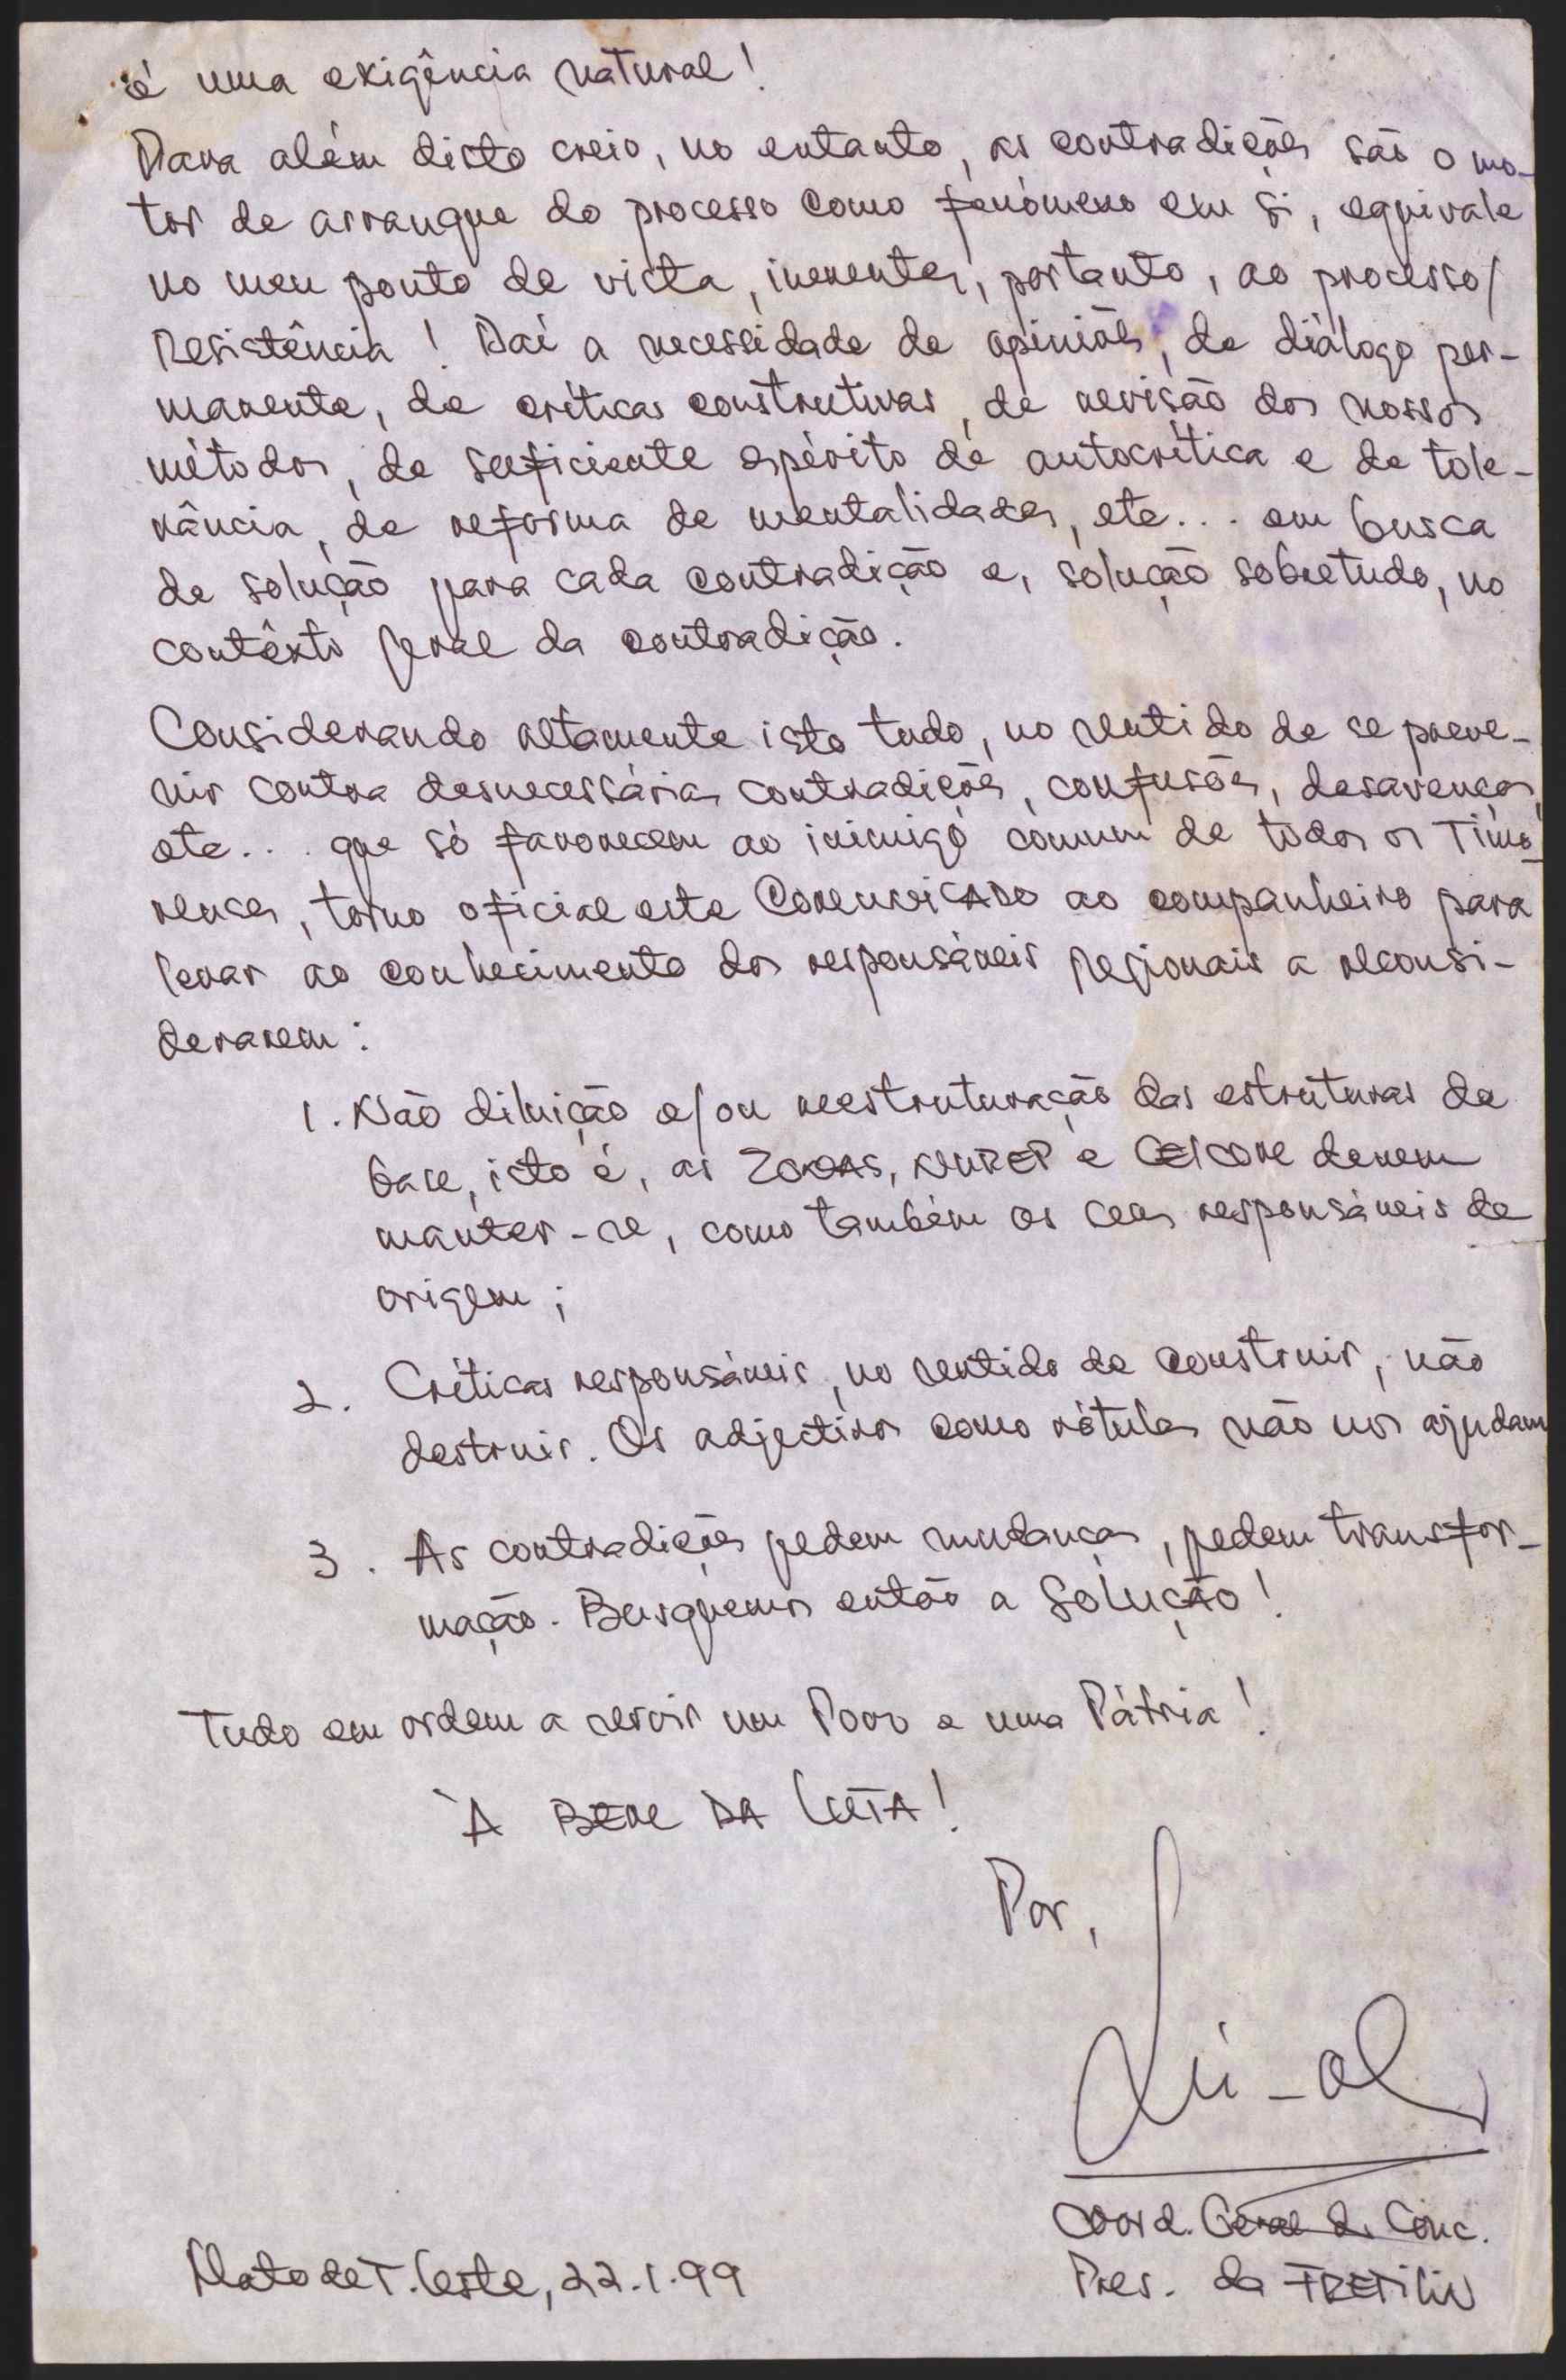 é uma exigência natural!
Para além disto creio, no entanto, as contradições são o mo-
tor de arranque do processo como fenómeno em si, equivale
no meu ponto de vista, inerentes, portanto, ao processo/
Resistência! Daí a necessidade de opiniões, de diálogo per-
manente, de críticas construtivas, de revisão dos nossos
métodos, de suficiente espírito de autocrítica e de tole-
rância, de reforma de mentalidades, etc... em busca
de solução para cada contradição e, solução sobretudo, no
contêxto geral da contradição.
Considerando altamente isto tudo, no sentido de se preve-
nir contra desnecessárias contradições, confusões, desavenças,
etc... que só favorecem ao inimigo comum de todos os Timo-
renses, torno oficial este COMUNICADO ao companheiro para
levar ao conhecimento dos responsáveis Regionais a reconsi-
derarem:
1. Não diluição e/ou reestruturação das estruturas de
base, isto é, as ZONAS, NUREP e CELCOM devem
manter-se, como também os seus responsáveis de
origem;
2. Críticas responsáveis, no sentido de construir, não
destruir. Os adjectivos como rótulos não nos ajudam
3. As contradições pedem mudanças, pedem transfor-
mação. Busquemos então a SOLUÇÃO!
Tudo em ordem a servir um Povo e uma Pátria!
À BEM DA LUTA!
Por,
Lú-ol
Coord. Geral do Conc.
Pres. da FRETILIN
Mato de T. Leste, 22.1.99